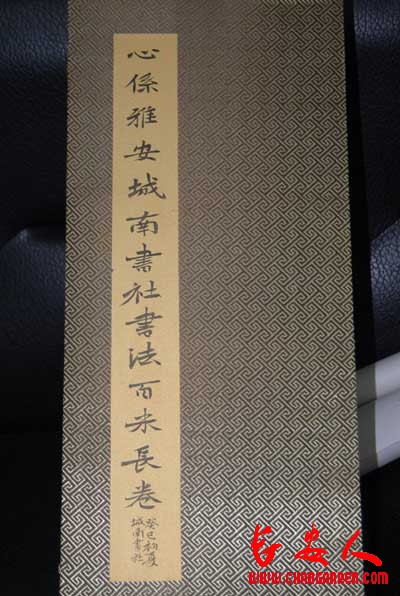 心係雅安城南書社書法百米長卷
癸巳初夏
城南書社
长安人
WWW.CHANGANREN.COM